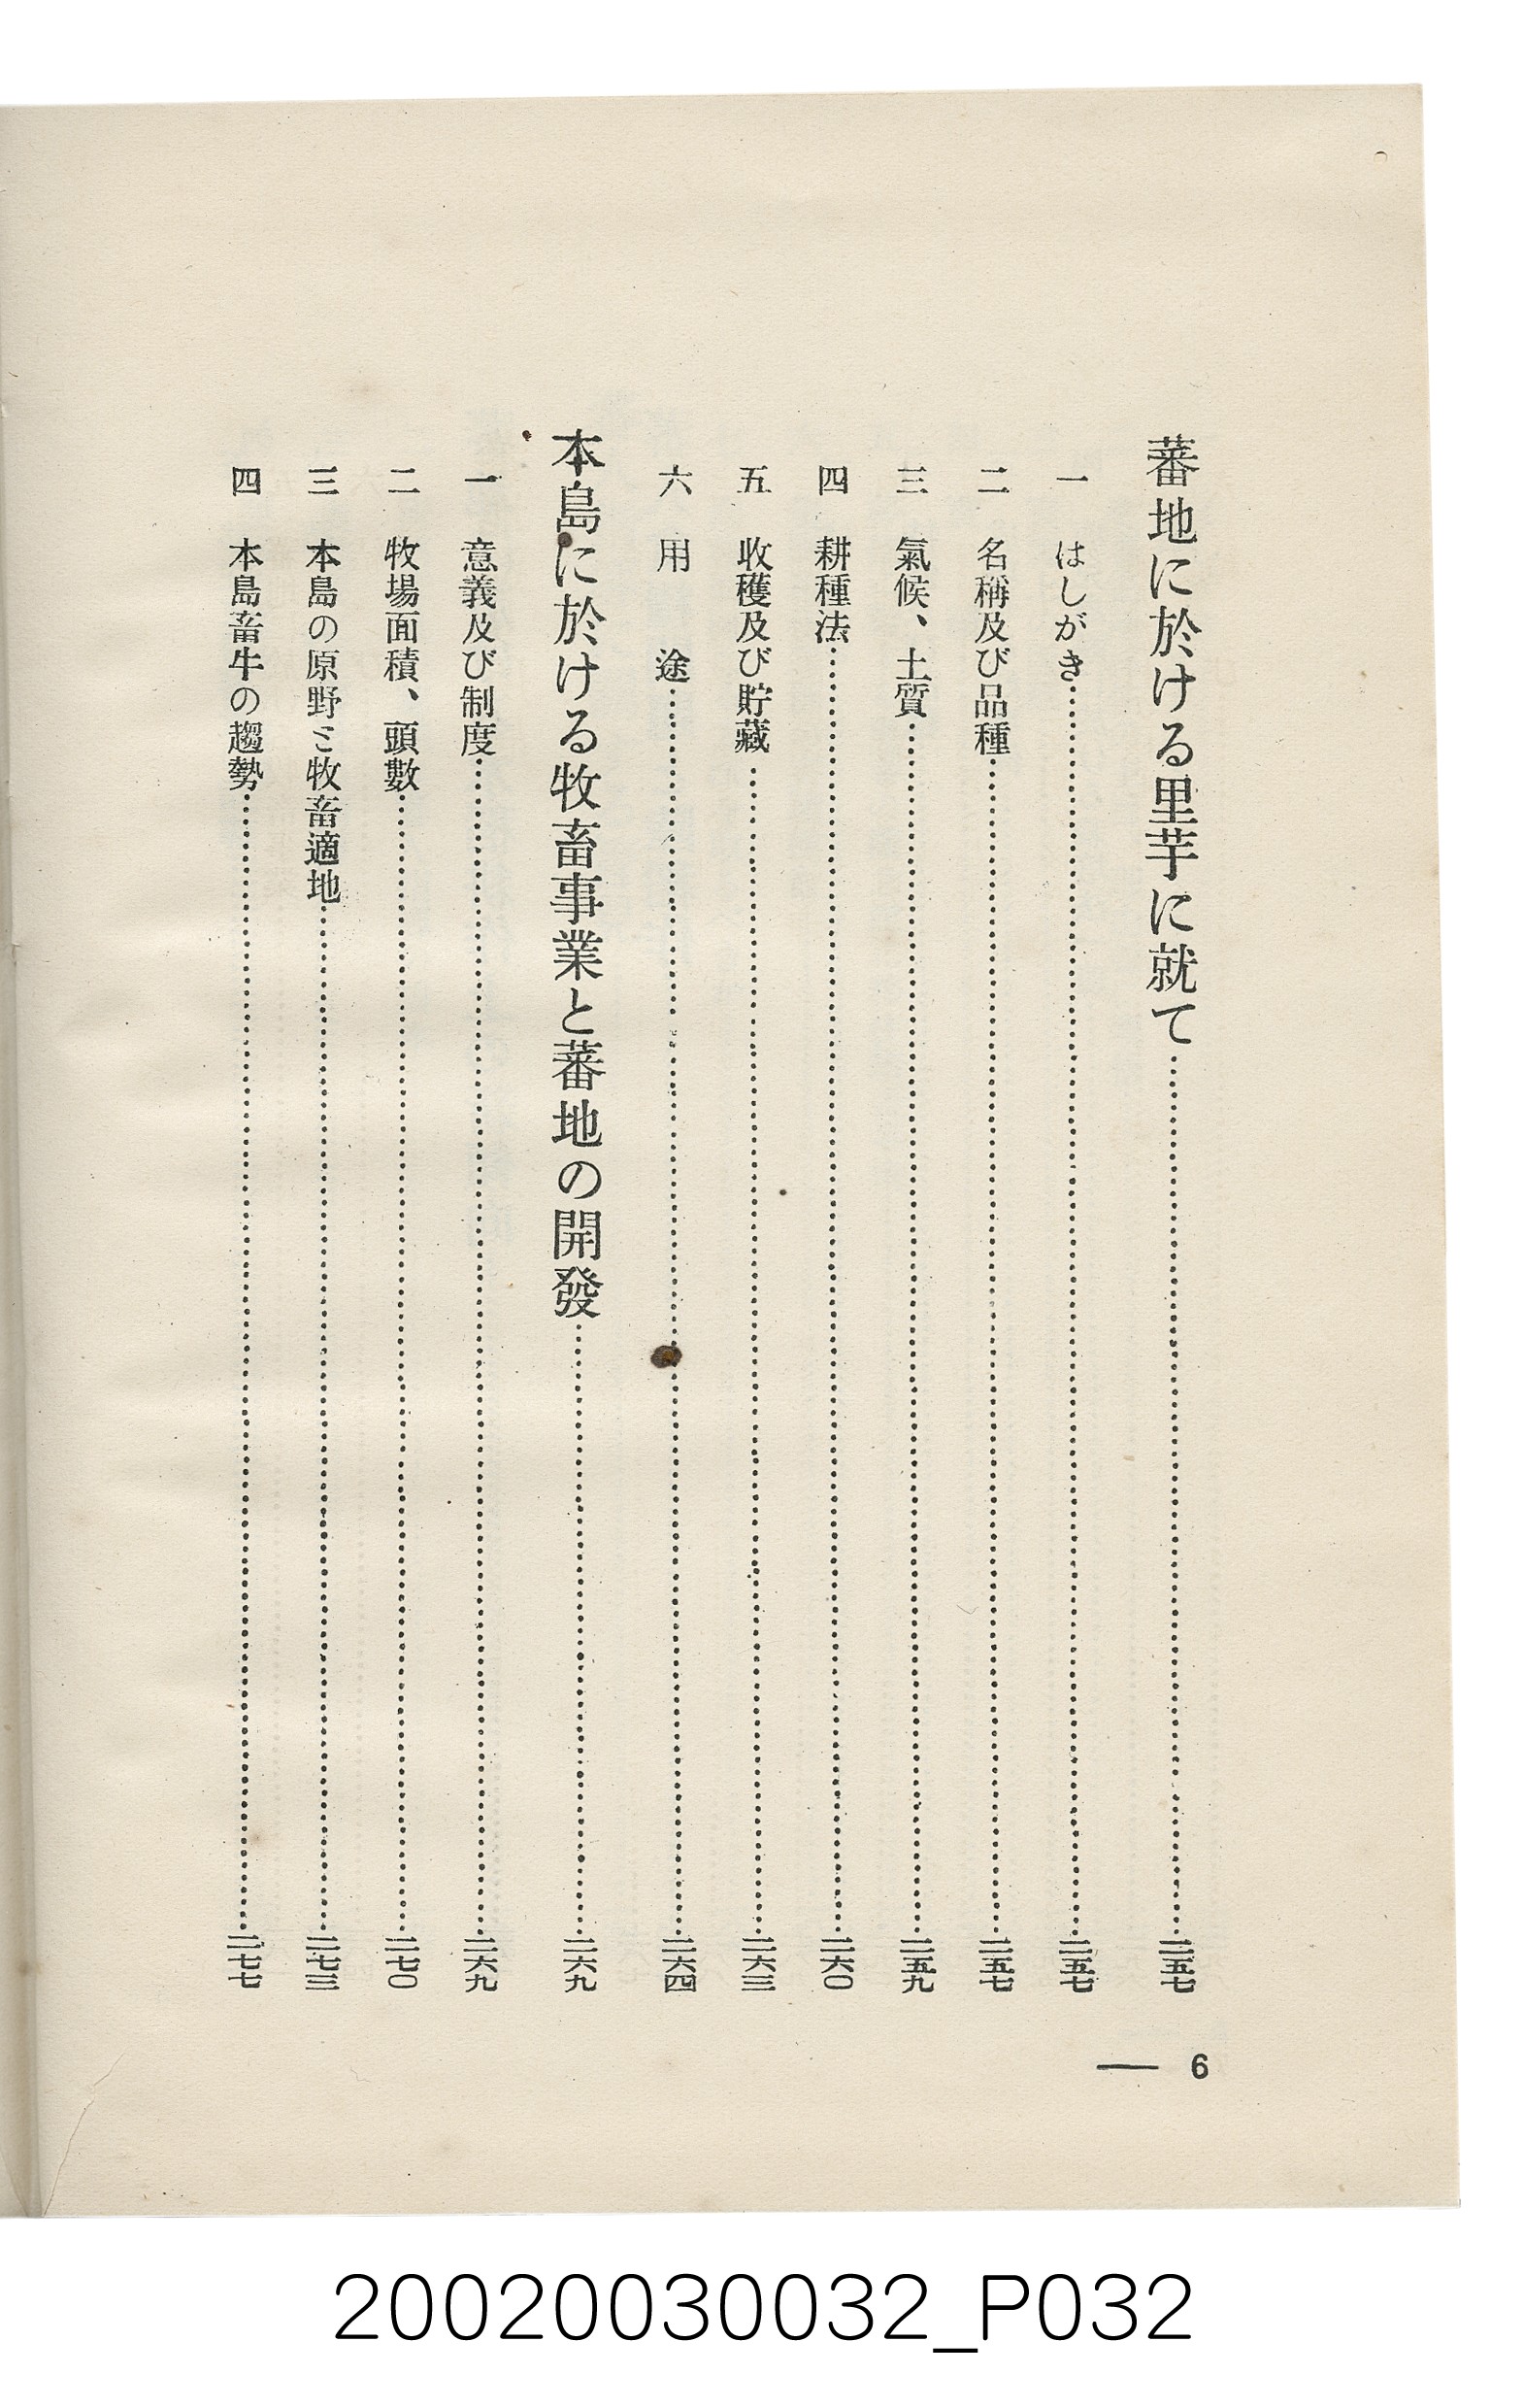 蕃地に於ける里芋に就て……二五七
一 はしがき……二五七
二 名稱及び品種……二五七
三 氣候、土質……二五九
四 耕種法……二六〇
五 收穫及び貯藏……二六三
六 用途……二六四
本島に於ける牧畜事業と蕃地の開發……二六九
一 意義及び制度……二六九
二 牧場面積、頭數……二七〇
三 本島の原野と牧畜適地……二七三
四 本島畜牛の趨勢……二七七
— 6
20020030032_P032